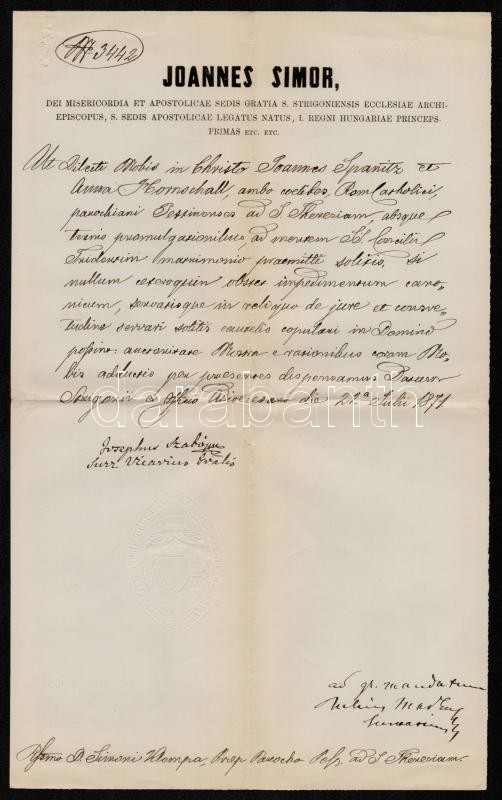 № 3442
JOANNES SIMOR,
DEI MISERICORDIA ET APOSTOLICAE SEDIS GRATIA S. STRIGONIENSIS ECCLESIAE ARCHI-
EPISCOPUS, S. SEDIS APOSTOLICAE LEGATUS NATUS, I. REGNI HUNGARIAE PRINCEPS-
PRIMAS ETC. ETC.
Ut Dilecti Nobis in Christo Joannes Spanitz et
Anna Hornschall, ambo coelibes, Rom Catholici,
parochiani Pestinenses ad S Theresiam, absque
ternis promulgationibus, ad mentem SS. Concilii
Tridentini matrimonio praemitti solitis, si
nullum ceteroquin obstet impedimentum cano-
nicum, servatisque in reliquo de jure et consve-
tudine servari solitis caute copulari in Domino
possint: auctoritate Nostra e rationibus coram No-
bis adductis per praesentes dispensamus Datum
Strigonii e Officio Dioecesano die 21ª Julii 1871
darabanth
Josephus Szabó
Surr. Vicarius Gralis
ad gr. mandatum
Julius
Rssmo D. Simoni Klempa, Praep Parocho Pest. ad S Theresiam.